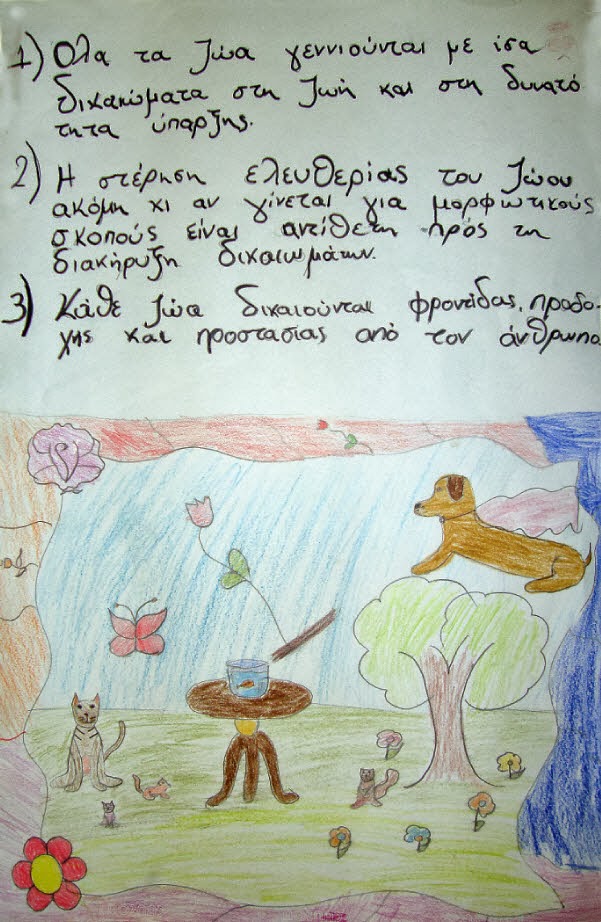 1) Ολα τα Ζώα γεννιούνται με ίσα
δικαιώματα στη Ζωή και στη δυνατό
τητα ύπαρξης.
2) Η στέρηση ελευθερίας του Ζώου
ακόμη κι αν γίνεται για μορφωτικούς
σκοπούς είναι αντίθετη προς τη
διακήρυξη δικαιωμάτων.
3) Κάθε Ζώα δικαιούνται φροντίδας, προσο-
χης και προστασίας από τον άνθρωπο